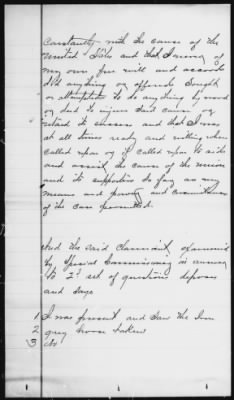 Constantly with the cause of the
United States and that I never of
my own free will and accord
did anything or offered sought
or attempted to do anything by word
or deed to injure said cause or
retard its success and that I was
at all times ready and willing when
called upon or if called upon to aid
and assist the cause of the union
and its supporters so far as my
means and power and circumstances
of the case permitted.
And the said Claimant, examined
by Special Commissioner in answer
to 2d set of questions deposes
and says
1 I was present and saw the Iron
2 grey horse taken
3 No